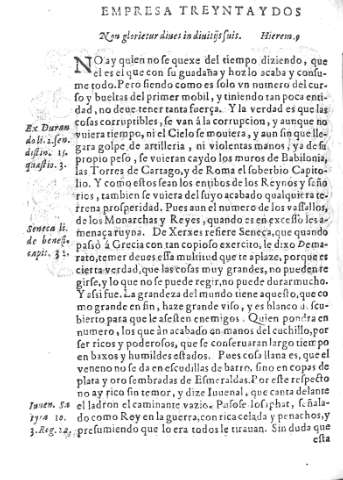 EMPRESA TREYNTAYDOS
Non glorietur diues in diuitijs suis. Hierem.9
NO ay quien no se quexe del tiempo diziendo, que
el es el que con su guadaña y hoz lo acaba y consu-
me todo. Pero siendo como es solo vn numero del cur-
so y bueltas del primer mobil, y tiniendo tan poca enti-
dad, no deue tener tanta fuerça. Y la verdad es que las
cosas corruptibles, se van á la corrupcion, y aunque no
vuiera tiempo, ni el Cielo se mouiera, y aun sin que lle-
gara golpe de artilleria, ni violentas manos, ya de su
propio peso, se vuieran caydo los muros de Babilonia,
las Torres de Cartago, y de Roma el soberbio Capito-
lio. Y como estos sean los
de los Reynos y seño
rios, tambien se vuiera del suyo acabado qualquiera te-
rrena prosperidad. Pues aun el numero de los vassallos,
de los Monarchas y Reyes, quando es en excesso les a-
menaça ruyna. De Xerxes refiere Seneca, que quando
passó á Grecia con tan copioso exercito, le dixo Dema-
rato, temer deues essa multitud que te aplaze, porque es
cierta verdad, que las cosas muy grandes, no pueden re
girse, y lo que no se puede regir, no puede durar mucho.
Y assi fue. La grandeza del mundo tiene aquesto, que co
mo grande en fin, haze grande viso, y es blanco descu-
bierto para que le assesten enemigos. Quien pondra en
numero, los que án acabado en manos del cuchillo, por
ser ricos y poderosos, que se conseruaran largo tiempo
en baxos y humildes estados. Pues cosa llana es, que el
veneno no se da en escudillas de barro, sino en copas de
plata y oro sembradas de Esmeraldas. Por este respecto
no ay rico sin temor, y dize Iuuenal, que canta delante
el ladron el caminante vazio. Pusose Iosaphat, señala-
do como Rey en la guerra, con rica celada y penachos, y
presumiendo que lo era todos le tirauan. Sin duda que
esta
Ex Duran
do li. 2. sen.
distin.
quæstio. 3.
Seneca li.
de benefi.
capit. 32
Iuuen. Sa
tyra 10.
3. Reg. 22.